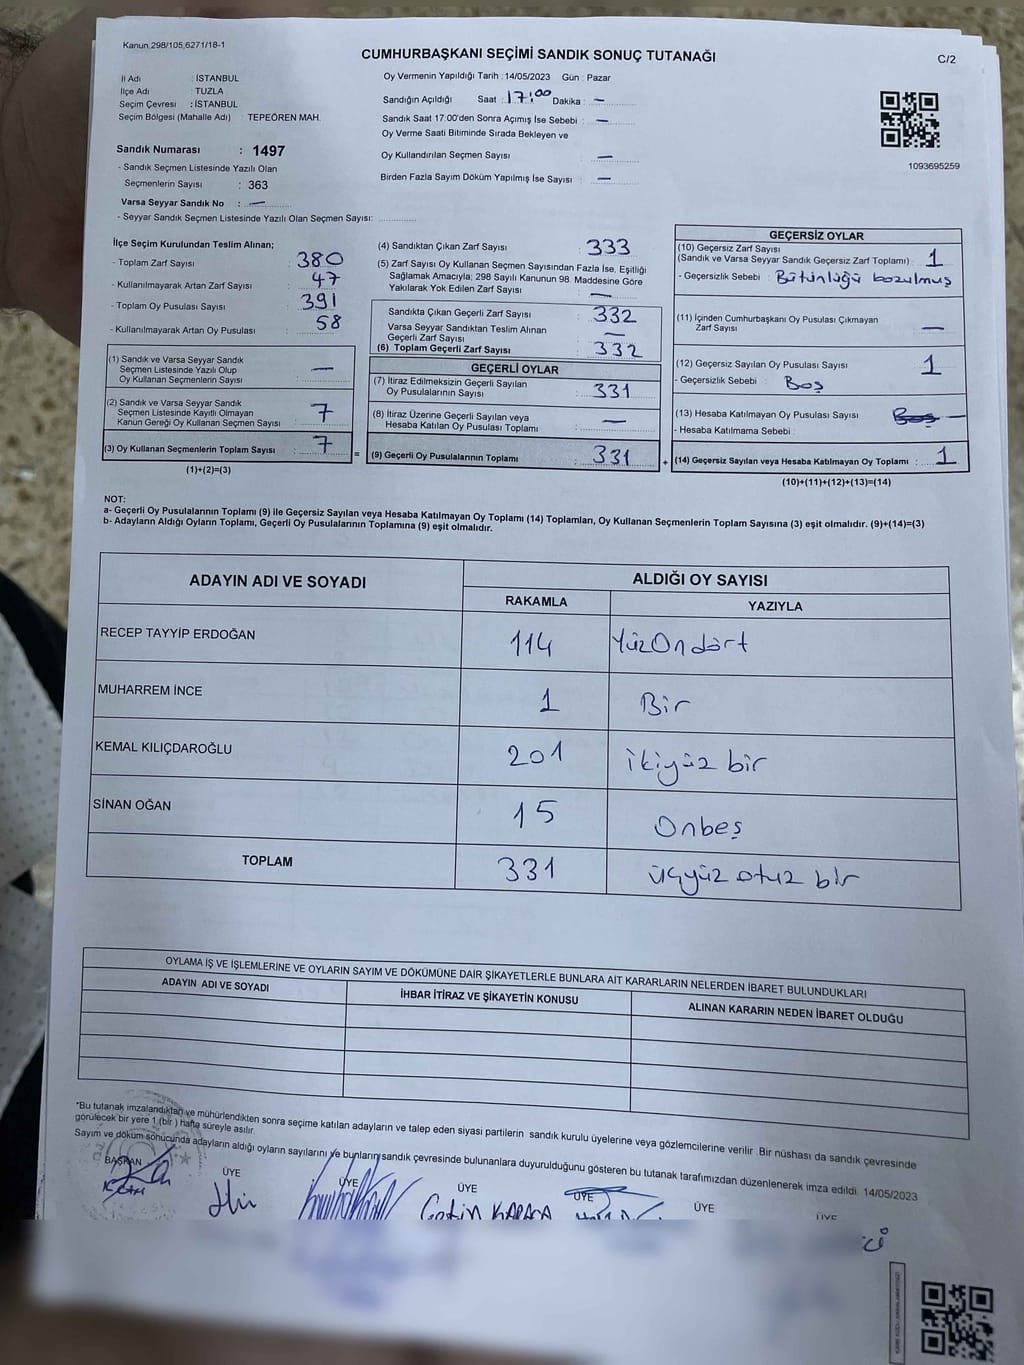 Kanun 298/105,6271/18-1
CUMHURBAŞKANI SEÇİMİ SANDIK SONUÇ TUTANAĞI
C/2
İl Adı : İSTANBUL
İlçe Adı : TUZLA
Seçim Çevresi : İSTANBUL
Seçim Bölgesi (Mahalle Adı) : TEPEÖREN MAH.
Oy Vermenin Yapıldığı Tarih : 14/05/2023 Gün : Pazar
Sandığın Açıldığı Saat : 17:00 Dakika : —
Sandık Saat 17:00'den Sonra Açımış İse Sebebi : —
Oy Verme Saati Bitiminde Sırada Bekleyen ve
Oy Kullandırılan Seçmen Sayısı —
Birden Fazla Sayım Döküm Yapılmış İse Sayısı : —
1093695259
Sandık Numarası : 1497
- Sandık Seçmen Listesinde Yazılı Olan
Seçmenlerin Sayısı : 363
Varsa Seyyar Sandık No : —
- Seyyar Sandık Seçmen Listesinde Yazılı Olan Seçmen Sayısı:
İlçe Seçim Kurulundan Teslim Alınan;
- Toplam Zarf Sayısı : 380
- Kullanılmayarak Artan Zarf Sayısı : 47
- Toplam Oy Pusulası Sayısı : 391
- Kullanılmayarak Artan Oy Pusulası : 58
(1) Sandık ve Varsa Seyyar Sandık
Seçmen Listesinde Yazılı Olup
Oy Kullanan Seçmenlerin Sayısı : —
(2) Sandık ve Varsa Seyyar Sandık
Seçmen Listesinde Kayıtlı Olmayan
Kanun Gereği Oy Kullanan Seçmen Sayısı : 7
(3) Oy Kullanan Seçmenlerin Toplam Sayısı : 7
(1)+(2)=(3)
=
(4) Sandıktan Çıkan Zarf Sayısı : 333
(5) Zarf Sayısı Oy Kullanan Seçmen Sayısından Fazla İse, Eşitliği
Sağlamak Amacıyla; 298 Sayılı Kanunun 98. Maddesine Göre
Yakılarak Yok Edilen Zarf Sayısı —
Sandıkta Çıkan Geçerli Zarf Sayısı : 332
Varsa Seyyar Sandıktan Teslim Alınan
Geçerli Zarf Sayısı : —
(6) Toplam Geçerli Zarf Sayısı : 332
GEÇERLİ OYLAR
(7) İtiraz Edilmeksizin Geçerli Sayılan
Oy Pusulalarının Sayısı : 331
(8) İtiraz Üzerine Geçerli Sayılan veya
Hesaba Katılan Oy Pusulası Toplamı : —
(9) Geçerli Oy Pusulalarının Toplamı : 331
+
GEÇERSİZ OYLAR
(10) Geçersiz Zarf Sayısı
(Sandık ve Varsa Seyyar Sandık Geçersiz Zarf Toplamı) : 1
- Geçersizlik Sebebi : Bütünlüğü bozulmuş
(11) İçinden Cumhurbaşkanı Oy Pusulası Çıkmayan
Zarf Sayısı —
(12) Geçersiz Sayılan Oy Pusulası Sayısı : 1
- Geçersizlik Sebebi : Boş
(13) Hesaba Katılmayan Oy Pusulası Sayısı : Boş —
- Hesaba Katılmama Sebebi :
(14) Geçersiz Sayılan veya Hesaba Katılmayan Oy Toplamı : 1
(10)+(11)+(12)+(13)=(14)
NOT:
a- Geçerli Oy Pusulalarının Toplamı (9) ile Geçersiz Sayılan veya Hesaba Katılmayan Oy Toplamı (14) Toplamları, Oy Kullanan Seçmenlerin Toplam Sayısına (3) eşit olmalıdır. (9)+(14)=(3)
b- Adayların Aldığı Oyların Toplamı, Geçerli Oy Pusulalarının Toplamına (9) eşit olmalıdır.
ADAYIN ADI VE SOYADI ALDIĞI OY SAYISI
RAKAMLA YAZIYLA
RECEP TAYYİP ERDOĞAN 114 YüzOndört
MUHARREM İNCE 1 Bir
KEMAL KILIÇDAROĞLU 201 ikiyüz bir
SİNAN OĞAN 15 Onbeş
TOPLAM 331 üçyüz otuz bir
OYLAMA İŞ VE İŞLEMLERİNE VE OYLARIN SAYIM VE DÖKÜMÜNE DAİR ŞİKAYETLERLE BUNLARA AİT KARARLARIN NELERDEN İBARET BULUNDUKLARI
ADAYIN ADI VE SOYADI İHBAR İTİRAZ VE ŞİKAYETİN KONUSU ALINAN KARARIN NEDEN İBARET OLDUĞU
*Bu tutanak imzalandıktan ve mühürlendikten sonra seçime katılan adayların ve talep eden siyasi partilerin sandık kurulu üyelerine veya gözlemcilerine verilir. Bir nüshası da sandık çevresinde
görülecek bir yere 1 (bir ) hafta süreyle asılır.
Sayım ve döküm sonucunda adayların aldığı oyların sayılarını ve bunların sandık çevresinde bulunanlara duyurulduğunu gösteren bu tutanak tarafımızdan düzenlenerek imza edildi. 14/05/2023
BAŞKAN ÜYE ÜYE ÜYE ÜYE ÜYE ÜYE
Çetin KARACA